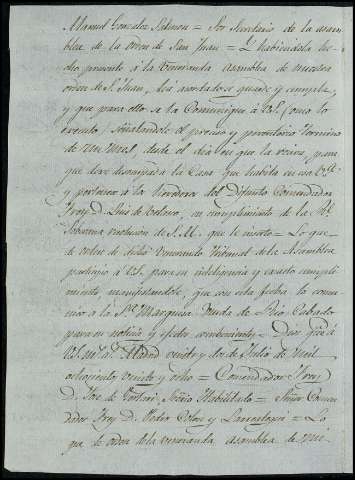 Manuel Gonzalez Salmon = Sor Secretario de la asam
blea de la orden de San Juan = Y habiendola he
cho presente á la Veneranda Asamblea de nuestra
orden de S. Juan, ha acordado se guarde y cumpla,
y que para ello se la Comunique á V.S. (como lo
executo) señalandole el preciso y perentorio termino
de un Mes, desde el dia en que la reciva para
que deve desocupar la Casa que habita en esa
y pertenece á la heredera del Difunto Comendador
Frey D. Luis de en cumplimiento de la Rl.
Soberana resolucion de S. M. que le inserto = Lo que
de orden de dicho Venerando Tribunal de la Asamblea
participo á V.S. para su inteligencia y exacto cumpli
miento manifestandole, que con esta fecha lo comu
nico á la Sra. Marquesa Viuda de Rio Cabado
para su noticia y efectos combenientes = Dios gue. á
V.S. ms. as. Madrid veinte y dos de Julio de mil
ochocientos veinte y ocho = Comendador Frey
D. Jose de Gortari, Secrio. Habilitado = Señor Comen
dador Frey D. Pedro Colon y Larreategui = Lo
que de orden de la veneranda asamblea de mi